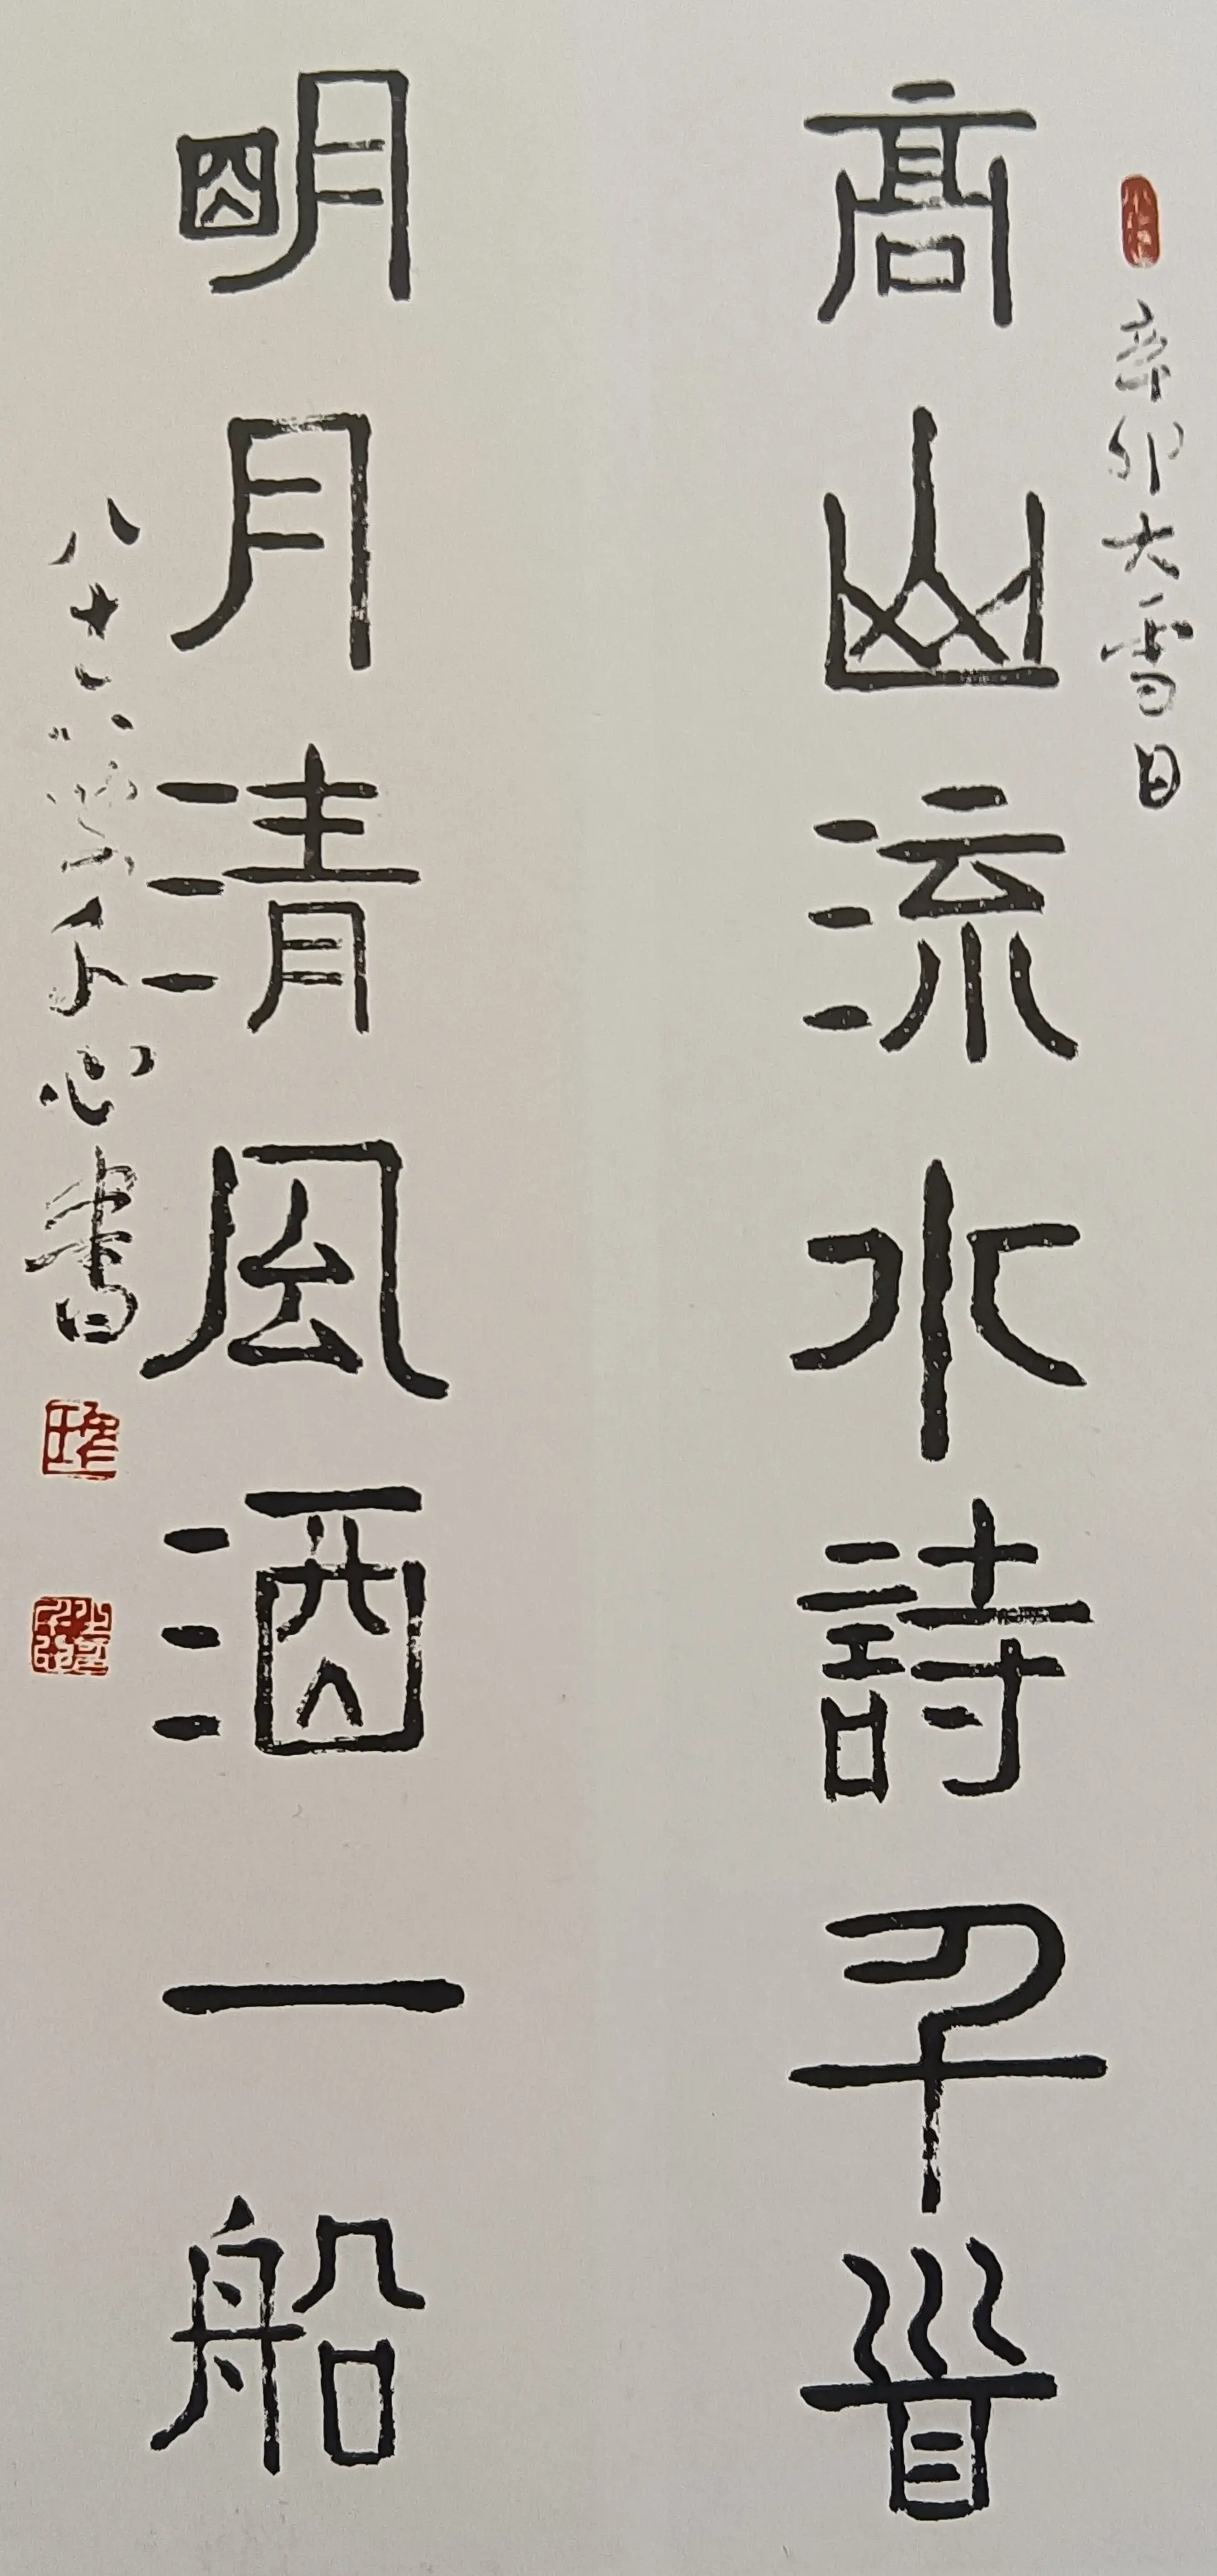 辛卯大雪日
高山流水詩千首
明月清風酒一船
八十八 千心書